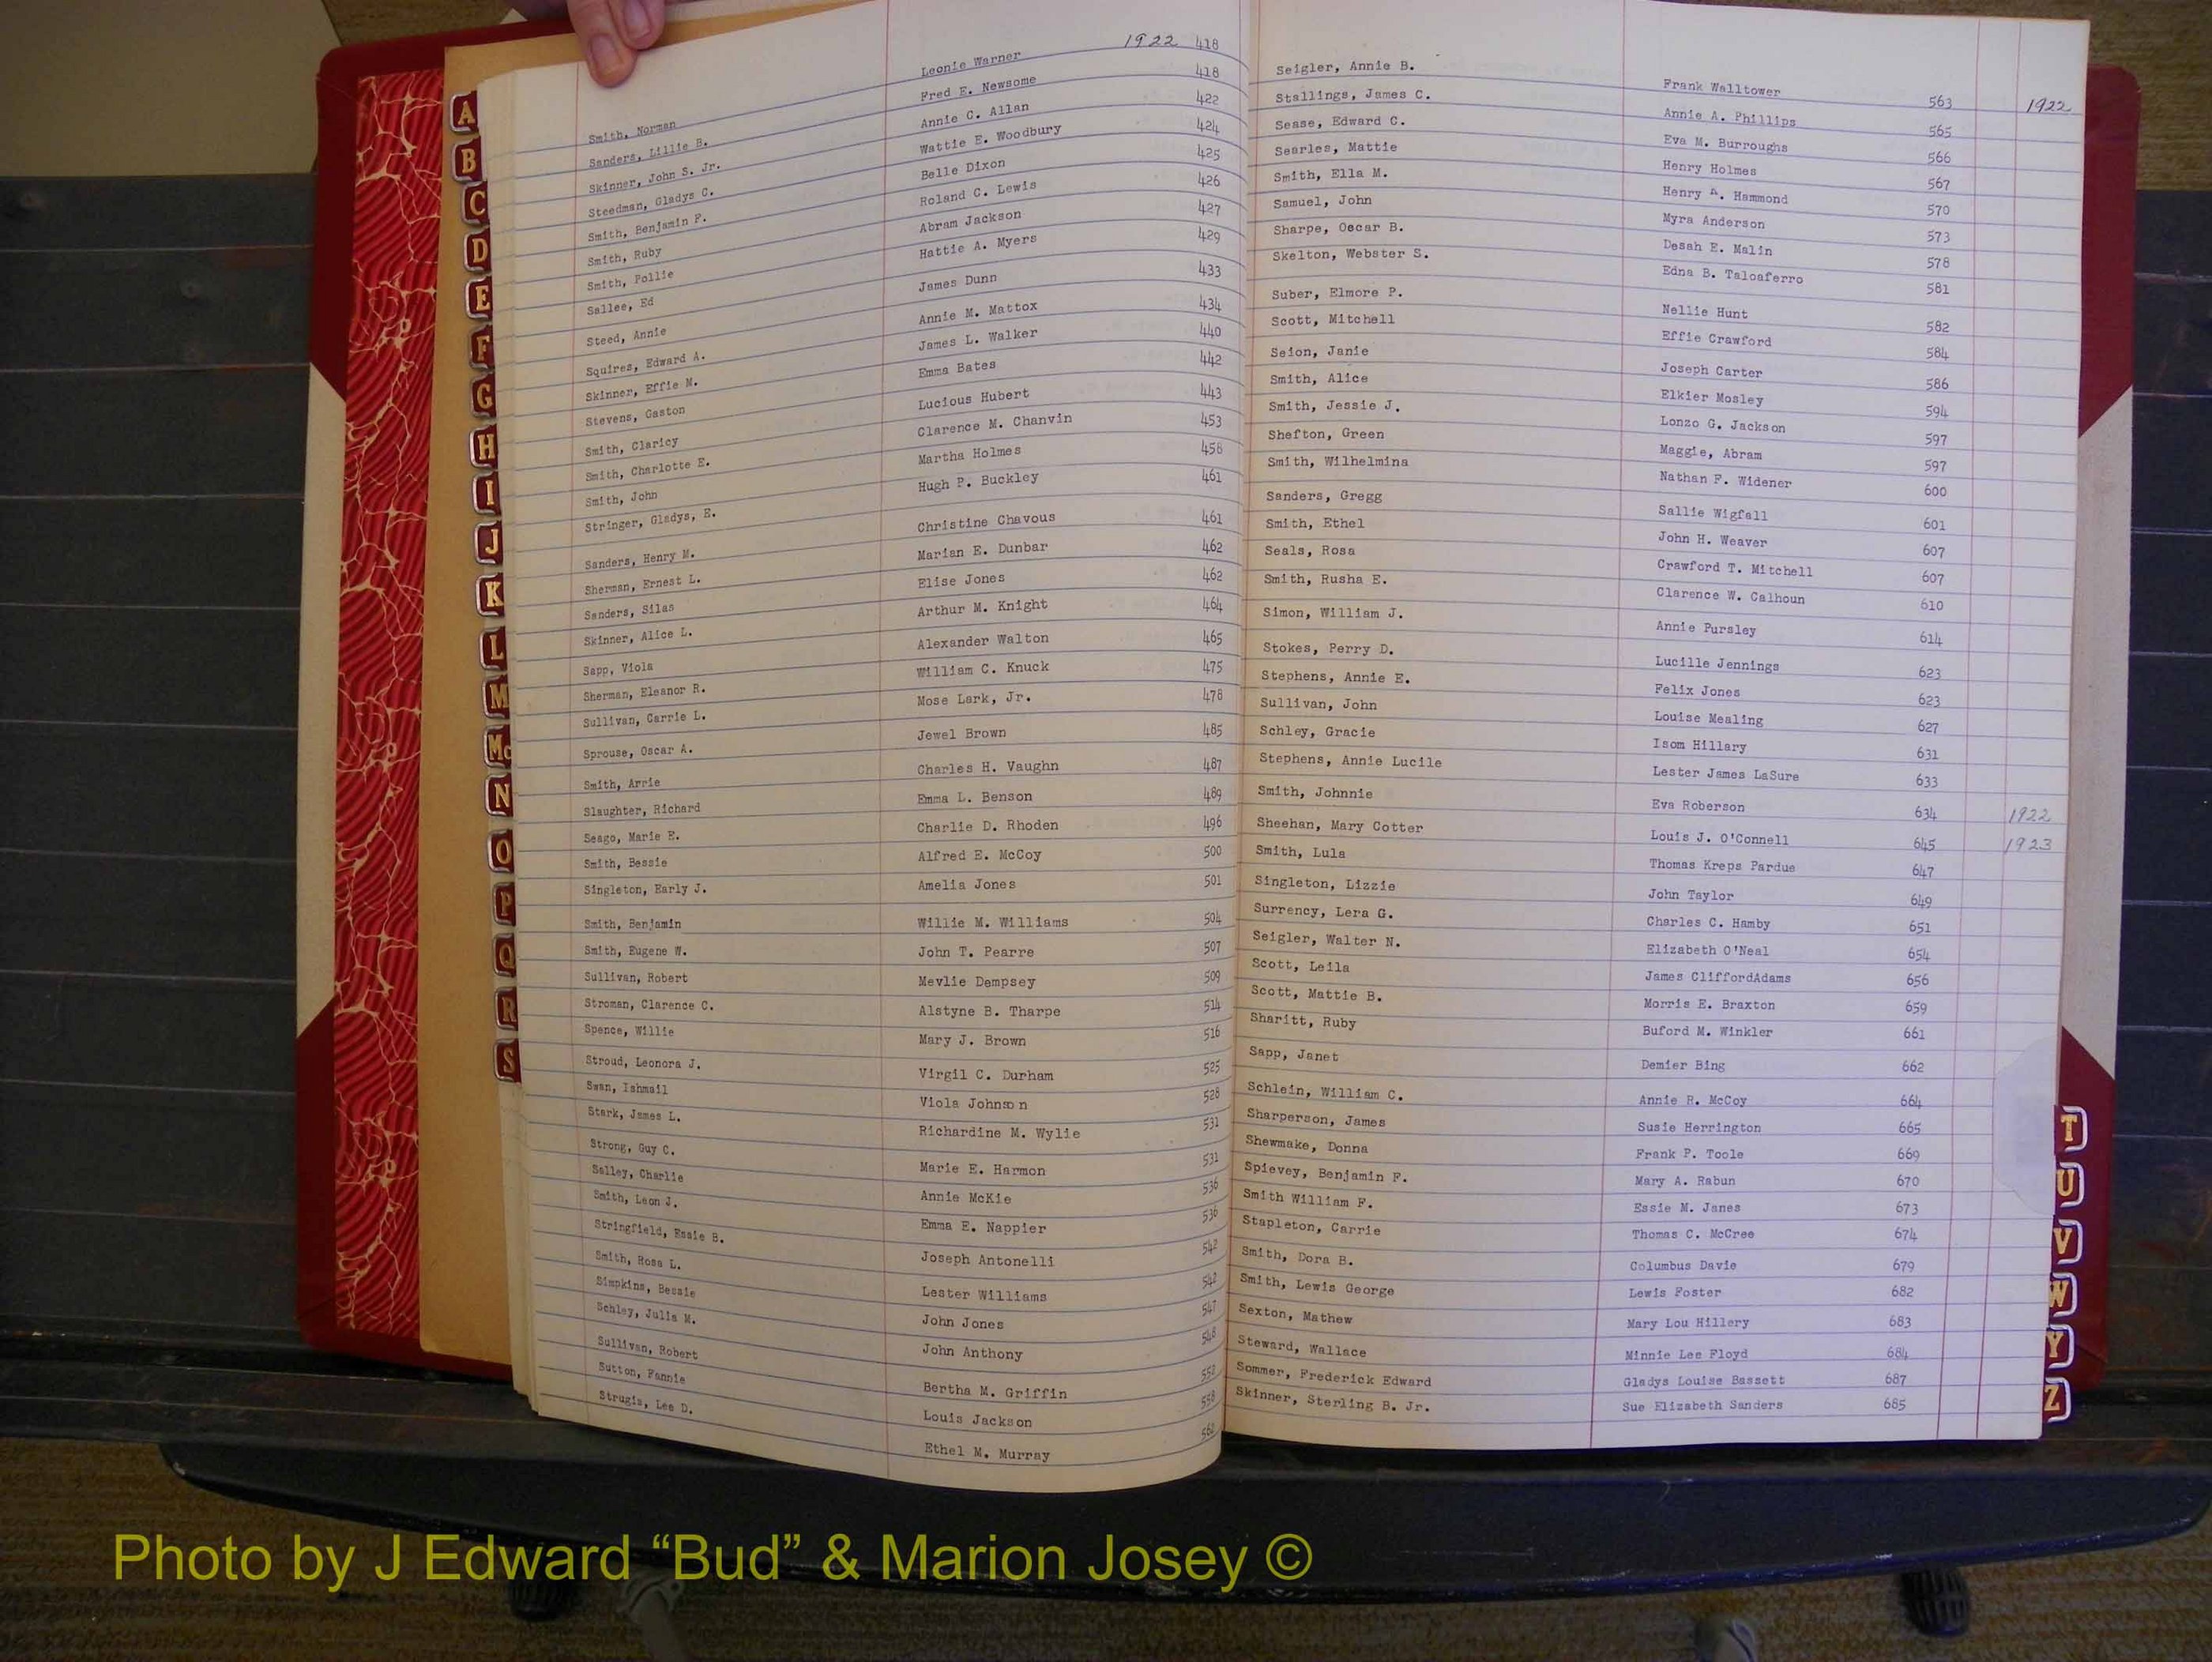 1922 418
Smith, Norman Leonie Warner 418
Sanders, Lillie B. Fred E. Newsome 422
Skinner, John S. Jr. Annie C. Allan 424
Steedman, Gladys C. Wattie E. Woodbury 425
Smith, Benjamin P. Belle Dixon 426
Smith, Ruby Roland C. Lewis 427
Smith, Pollie Abram Jackson 429
Sallee, Ed Hattie A. Myers 433
Steed, Annie James Dunn 434
Squires, Edward A. Annie M. Mattox 440
Skinner, Effie M. James L. Walker 442
Stevens, Gaston Emma Bates 443
Smith, Claricy Lucious Hubert 453
Smith, Charlotte E. Clarence M. Chanvin 458
Smith, John Martha Holmes 461
Stringer, Gladys, E. Hugh P. Buckley 461
Sanders, Henry M. Christine Chavous 462
Sherman, Ernest L. Marian E. Dunbar 462
Sanders, Silas Elise Jones 464
Skinner, Alice L. Arthur M. Knight 465
Sapp, Viola Alexander Walton 475
Sherman, Eleanor R. William C. Knuck 478
Sullivan, Carrie L. Mose Lark, Jr. 485
Sprouse, Oscar A. Jewel Brown 487
Smith, Arrie Charles H. Vaughn 489
Slaughter, Richard Emma L. Benson 496
Seago, Marie E. Charlie D. Rhoden 500
Smith, Bessie Alfred E. McCoy 501
Singleton, Early J. Amelia Jones 504
Smith, Benjamin Willie M. Williams 507
Smith, Eugene W. John T. Pearre 509
Sullivan, Robert Mevlie Dempsey 514
Stroman, Clarence C. Alstyne B. Tharpe 516
Spence, Willie Mary J. Brown 525
Stroud, Leonora J. Virgil C. Durham 528
Swan, Ishmail Viola Johnson 531
Stark, James L. Richardine M. Wylie 531
Strong, Guy C. Marie E. Harmon 536
Salley, Charlie Annie McKie 536
Smith, Leon J. Emma E. Nappier 542
Stringfield, Essie B. Joseph Antonelli 542
Smith, Rosa L. Lester Williams 547
Simpkins, Bessie John Jones 548
Schley, Julia M. John Anthony 552
Sullivan, Robert Bertha M. Griffin 558
Sutton, Fannie Louis Jackson 562
Strugis, Lee D. Ethel M. Murray
Seigler, Annie B. Frank Walltower 563 1922
Stallings, James C. Annie A. Phillips 565
Sease, Edward C. Eva M. Burroughs 566
Searles, Mattie Henry Holmes 567
Smith, Ella M. Henry A. Hammond 570
Samuel, John Myra Anderson 573
Sharpe, Oscar B. Desah E. Malin 578
Skelton, Webster S. Edna B. Taloaferro 581
Suber, Elmore P. Nellie Hunt 582
Scott, Mitchell Effie Crawford 584
Seion, Janie Joseph Carter 586
Smith, Alice Elkier Mosley 594
Smith, Jessie J. Lonzo G. Jackson 597
Shefton, Green Maggie, Abram 597
Smith, Wilhelmina Nathan F. Widener 600
Sanders, Gregg Sallie Wigfall 601
Smith, Ethel John H. Weaver 607
Seals, Rosa Crawford T. Mitchell 607
Smith, Rusha E. Clarence W. Calhoun 610
Simon, William J. Annie Pursley 614
Stokes, Perry D. Lucille Jennings 623
Stephens, Annie E. Felix Jones 623
Sullivan, John Louise Mealing 627
Schley, Gracie Isom Hillary 631
Stephens, Annie Lucile Lester James LaSure 633
Smith, Johnnie Eva Roberson 634 1922
Sheehan, Mary Cotter Louis J. O'Connell 645 1923
Smith, Lula Thomas Kreps Pardue 647
Singleton, Lizzie John Taylor 649
Surrency, Lera G. Charles C. Hamby 651
Seigler, Walter N. Elizabeth O'Neal 654
Scott, Leila James CliffordAdams 656
Scott, Mattie B. Morris E. Braxton 659
Sharitt, Ruby Buford M. Winkler 661
Sapp, Janet Demier Bing 662
Schlein, William C. Annie R. McCoy 664
Sharperson, James Susie Herrington 665
Shewmake, Donna Frank P. Toole 669
Spievey, Benjamin F. Mary A. Rabun 670
Smith William F. Essie M. Janes 673
Stapleton, Carrie Thomas C. McCree 674
Smith, Dora B. Columbus Davie 679
Smith, Lewis George Lewis Foster 682
Sexton, Mathew Mary Lou Hillery 683
Steward, Wallace Minnie Lee Floyd 684
Sommer, Frederick Edward Gladys Louise Bassett 687
Skinner, Sterling B. Jr. Sue Elizabeth Sanders 685
A
B
C
D
E
F
G
H
I
J
K
L
M
Mc
N
O
P
Q
R
S
T
U
V
W
Y
Z
Photo by J Edward “Bud” & Marion Josey ©